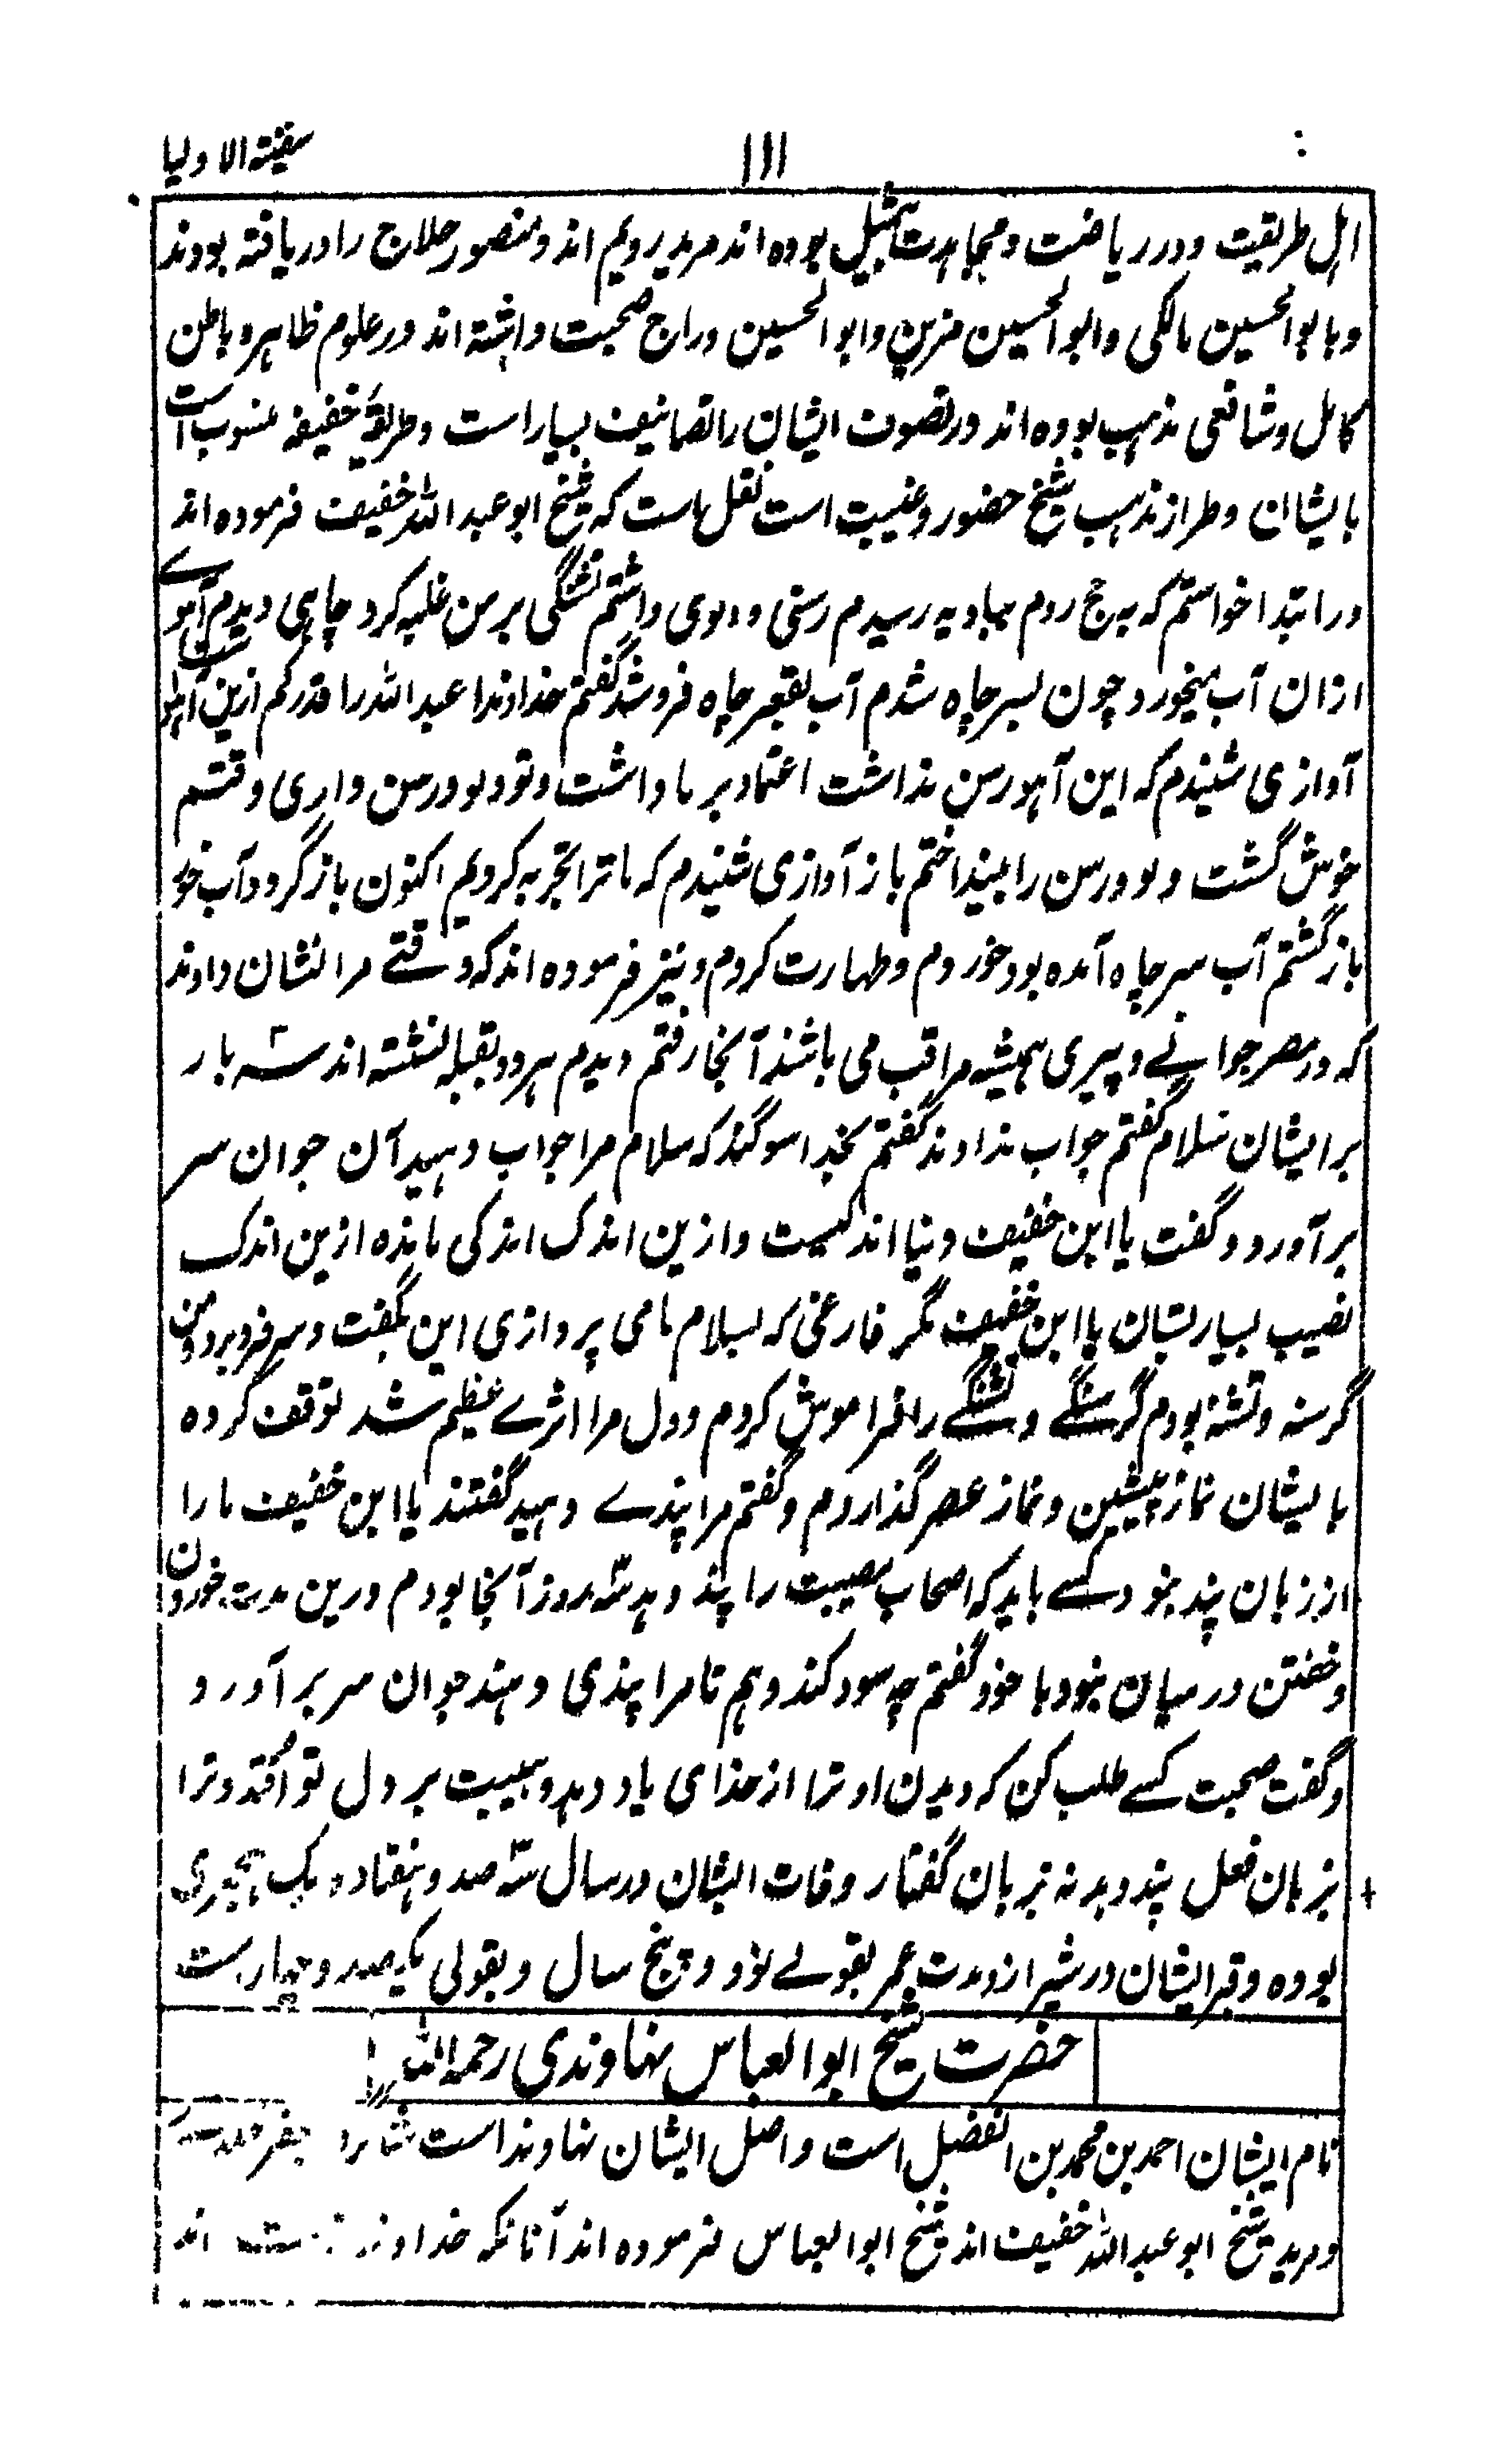 سفینة الاولیا
۱۱۱
اہل طریقیت و در ریاضت و مجاہدت بیمثیل بوده اند مرید رویم اند و منصور حلاج را دریافته بودند
و با بو الحسین مالکی و ابو الحسین مزین و ابو الحسین دراج صحبت داشته اند در علوم ظاہر و باطن
کامل و شافعی مذہب بوده اند در تصوف ایشان را تصانیف بسیار است و طریقۂ خفیفه منسوب است
بایشان و طراز مذہب شیخ حضور و غیبت است نقل است که شیخ ابو عبد اللہ خفیف فرموده اند
در ابتدا خواستم که به حج روم ببادیه رسیدم رسنی و دلوی داشتم تشنگی بر من غلبه کرد چاہی دیدم آہوے
ازان آب میخورد چون بسر چاه شدم آب بقعر چاه فرو شد گفتم خداوندا عبد اللہ را قدر کم ازین آہوست
آوازی شنیدم که این آہو رسن نداشت اعتماد بر ما داشت و تو دلو و رسن داری وقتم
خوش گشت دلو و رسن را بینداختم باز آوازی شنیدم که ما ترا تجربه کردیم اکنون باز گرد و آب خور
باز گشتم آب بسر چاه آمده بود خوردم و طہارت کردم و نیز فرموده اند که وقتے مرا نشان دادند
که در مصر جوانے و پیری ہمیشه مراقب می باشند آنجا رفتم دیدم ہر دو بقبله نشسته اند سه بار
بر ایشان سلام گفتم جواب ندادند گفتم بخدا سوگند که سلام مرا جواب دہید آن جوان سر
بر آورد و گفت یا ابن خفیف دنیا اندکیست و ازین اندک اندکی مانده ازین اندک
نصیب بسیار بستان یا ابن خفیف مگر فارغی که بسلام ما می پردازی این بگفت و سر فرو برد و من
گرسنه و تشنه بودم گرسنگے و تشنگے را فراموش کردم و دل مرا اثرے عظیم شد توقف کرده
با ایشان نماز پیشین و نماز عصر گذاردم و گفتم مرا پندے دہید گفتند یا ابن خفیف ما را
از زبان پند نبود کسے باید که اصحاب مصیبت را پند دہد سه روز آنجا بودم درین مدت خوردن
و خفتن در میان نبود با خود گفتم چه سوگند دہم تا مرا پندی دہند جوان سر بر آورد
و گفت صحبت کسے طلب کن که دیدن او ترا از خدای یاد دہد و ہیبت بر دل تو افتد و ترا
بزبان فعل پند دہد نه بزبان گفتار وفات ایشان در سال سه صد و ہفتاد و یک ہجری
بوده و قبر ایشان در شیراز و مدت عمر بقولے نود و پنج سال و بقولی یکصد و چهار ست
حضرت شیخ ابو العباس نهاوندی رحمة اللہ
نام ایشان احمد بن محمد بن الفضل است و اصل ایشان نهاوند است شاگرد جعفر
و مرید شیخ ابو عبد اللہ خفیف اند شیخ ابو العباس فرموده اند آنانکه خداوند اند